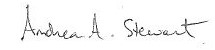 Andrea A. Stewart